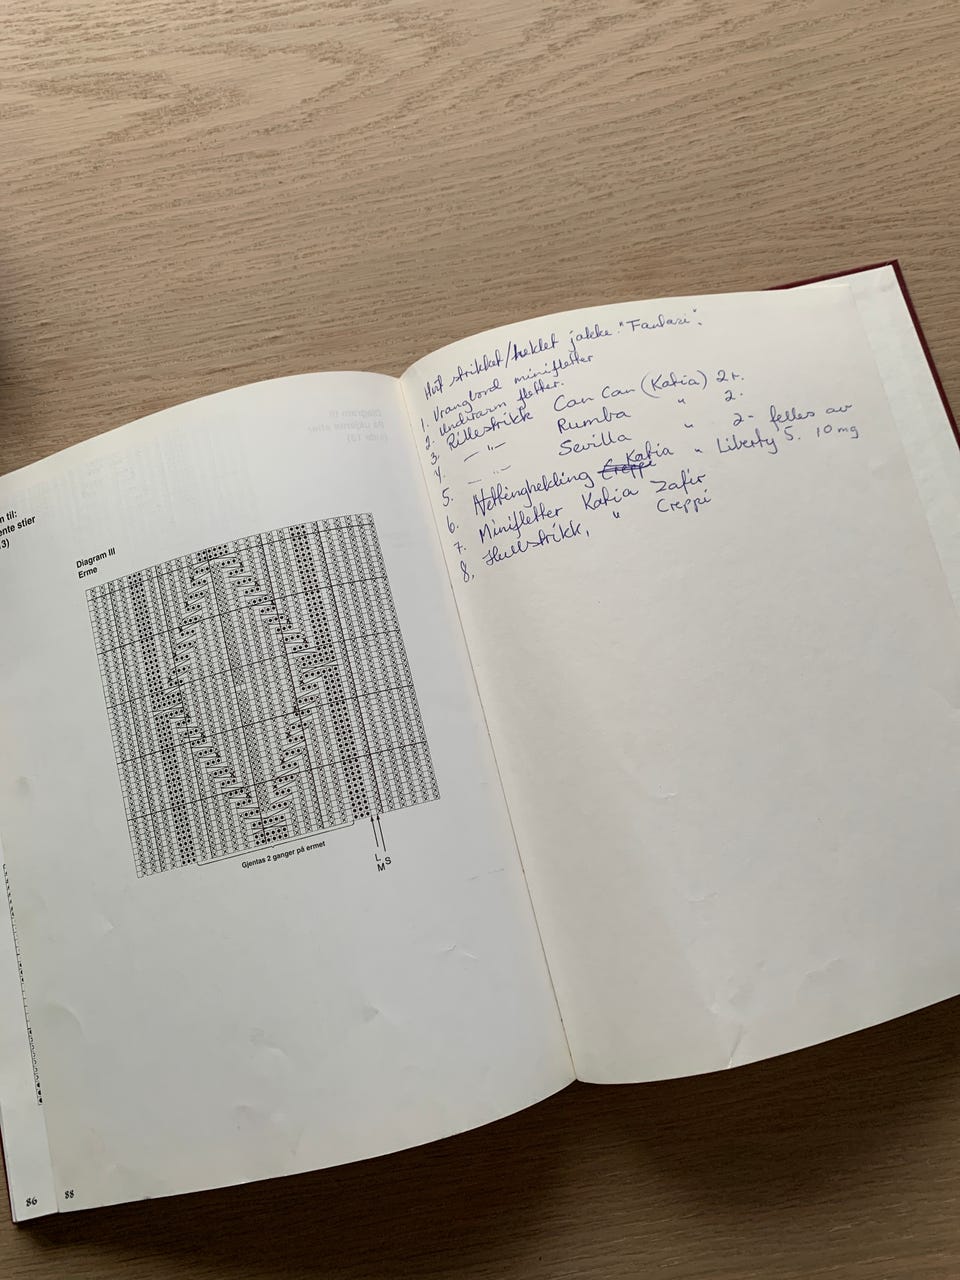 n til:
ente stier
3)
Diagram III
Erme
Gjentas 2 ganger på ermet
L
M S
86
88
Hvit strikket/heklet jakke "Fantasi".
1. Vrangbord minifletter
2. Underarm fletter.
3. Rillestrikk Can Can (Katia) 2 r.
4. — " — Rumba " 2.
5. — " — Sevilla " 2 - felles av
6. Nettinghekling Katia " Liberty 5. 10 mg
7. Minifletter Katia Zafir
8. Hullstrikk, " Creppi